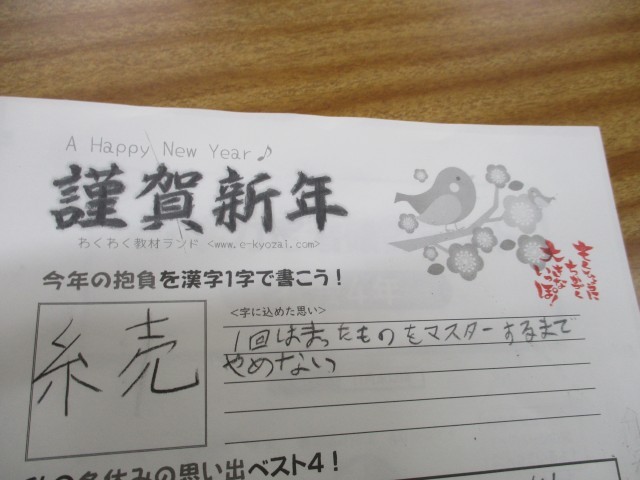 A Happy New Year♪
謹賀新年
わくわく教材ランド <www.e-kyozai.com>
今年の抱負を漢字1字で書こう！
続
<字に込めた思い>
1回はまったものをマスターするまで
やめない
冬休みの思い出ベスト4！